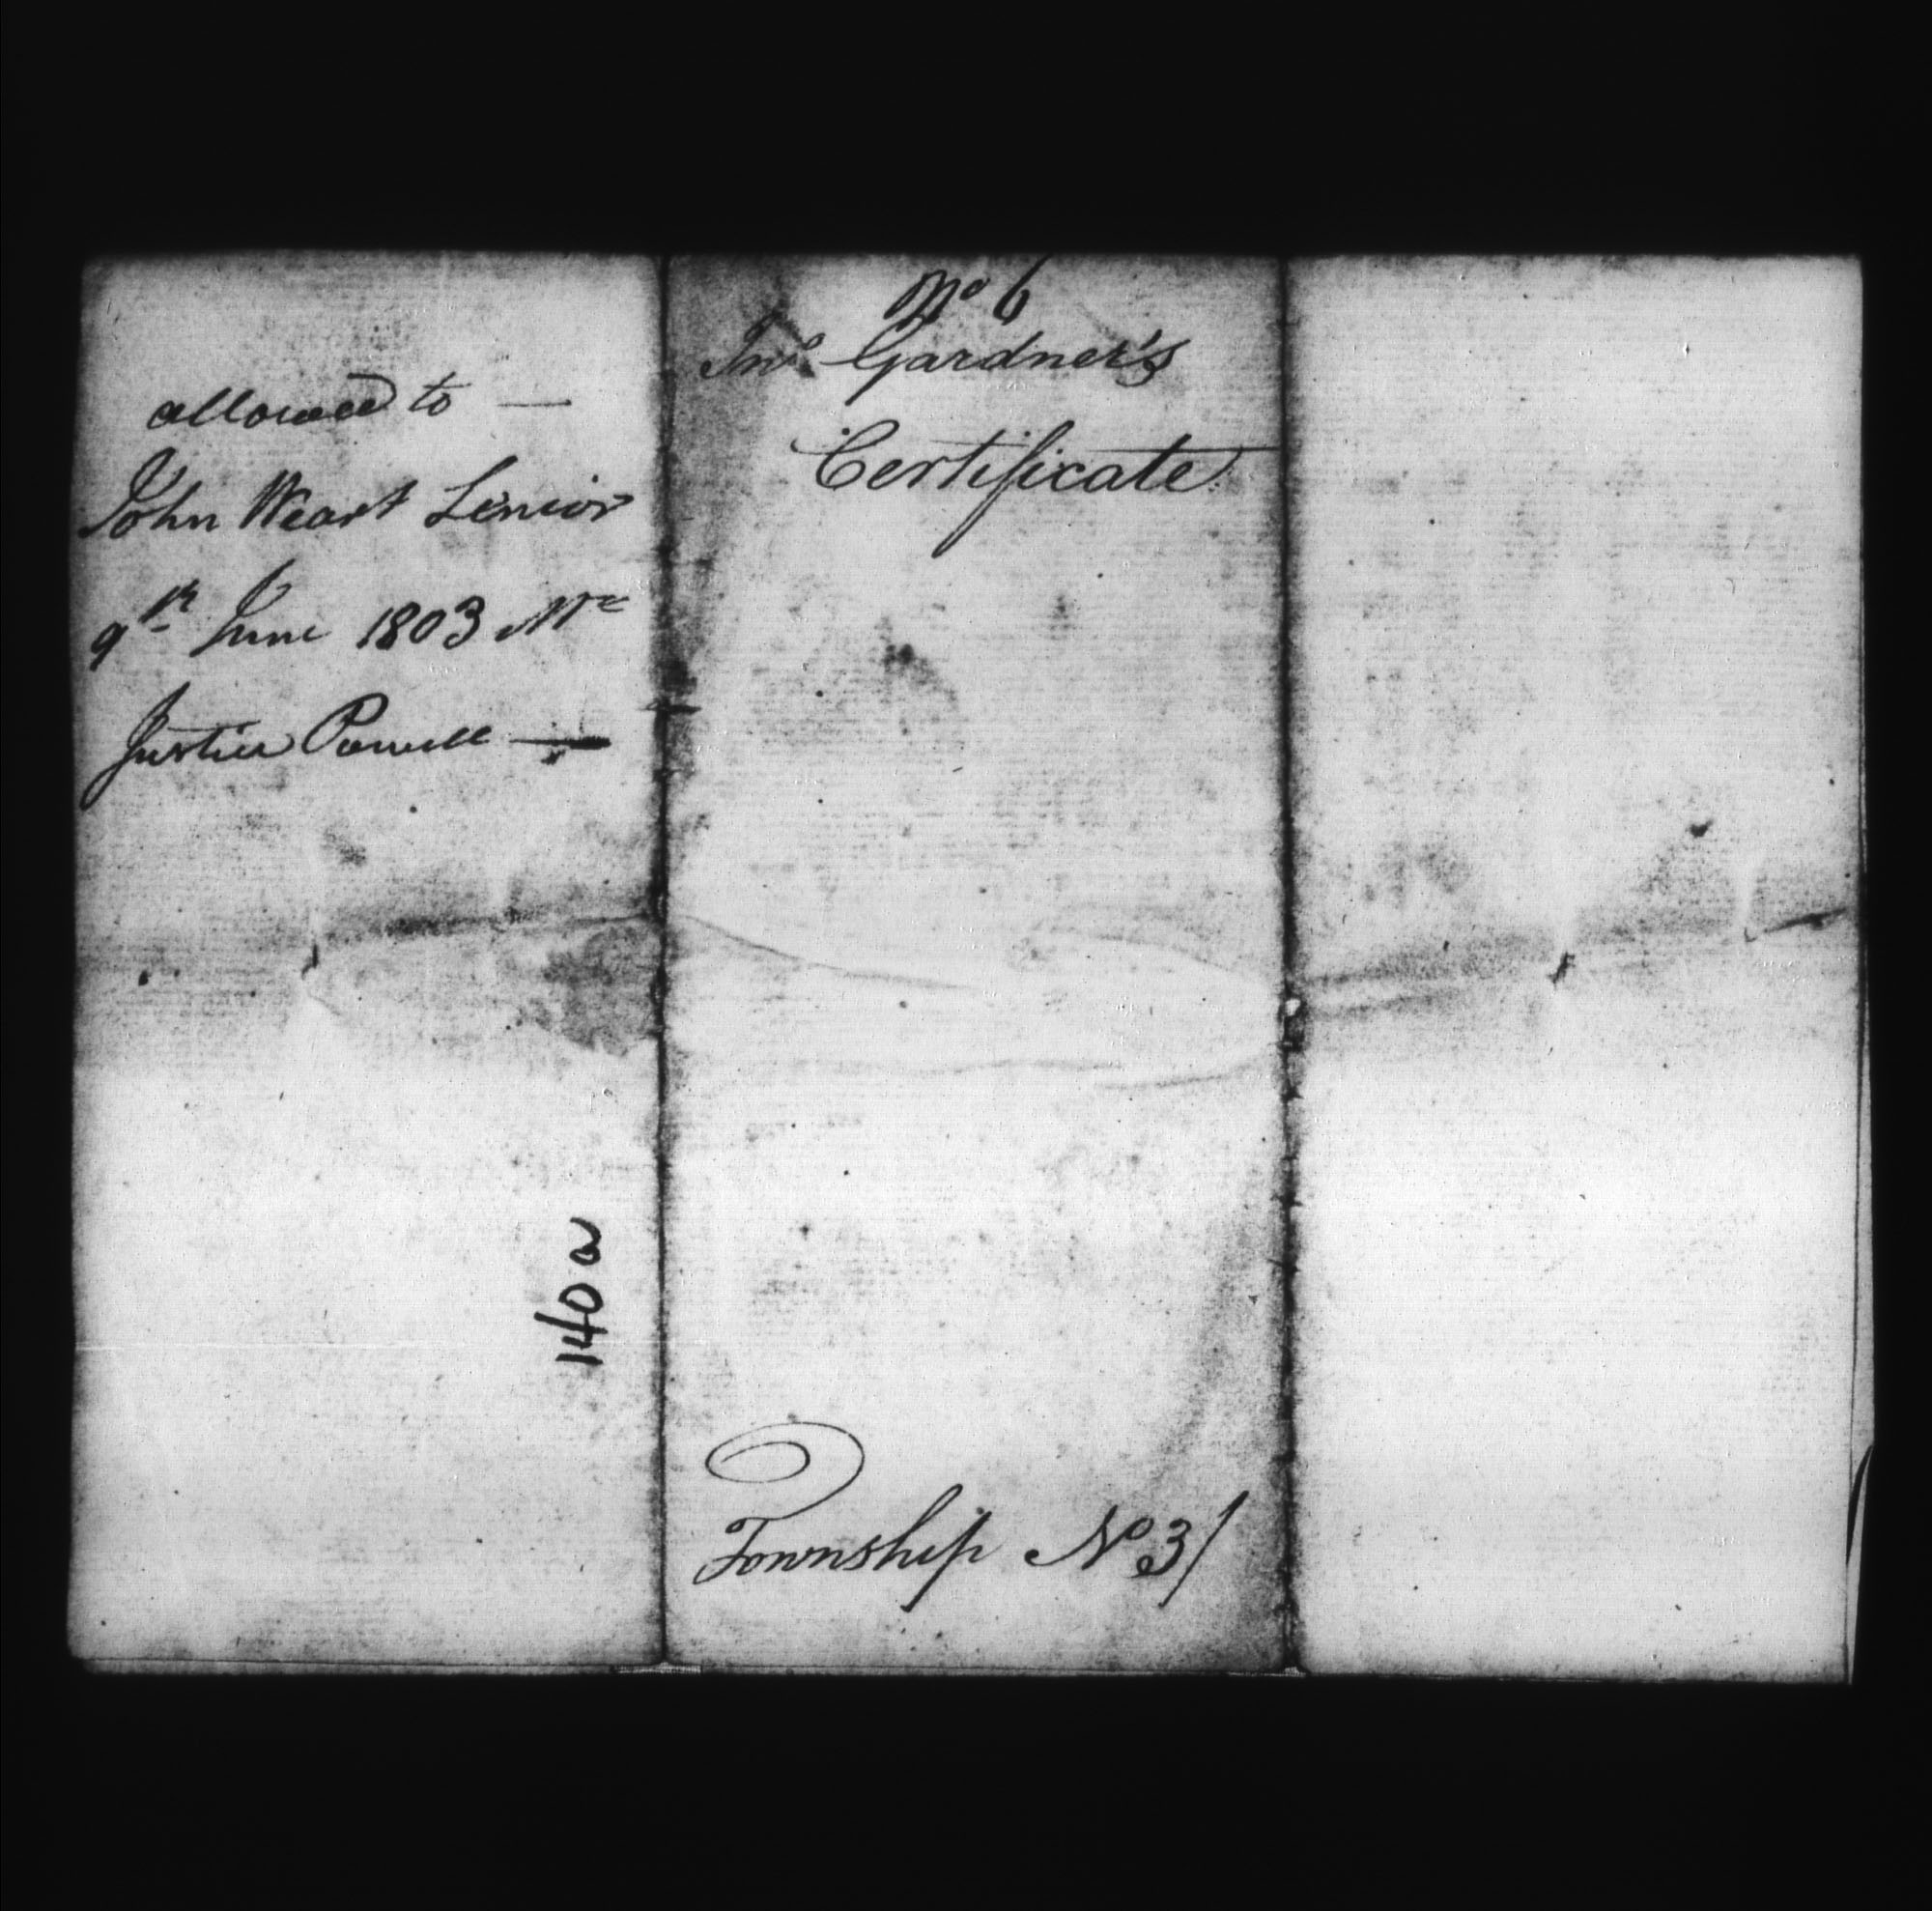 allowed to —
John Weart Senior
9th June 1803 Mr
Justice Powell —
140 a
No 6
Jno Gardner's
Certificate
Township No 3/